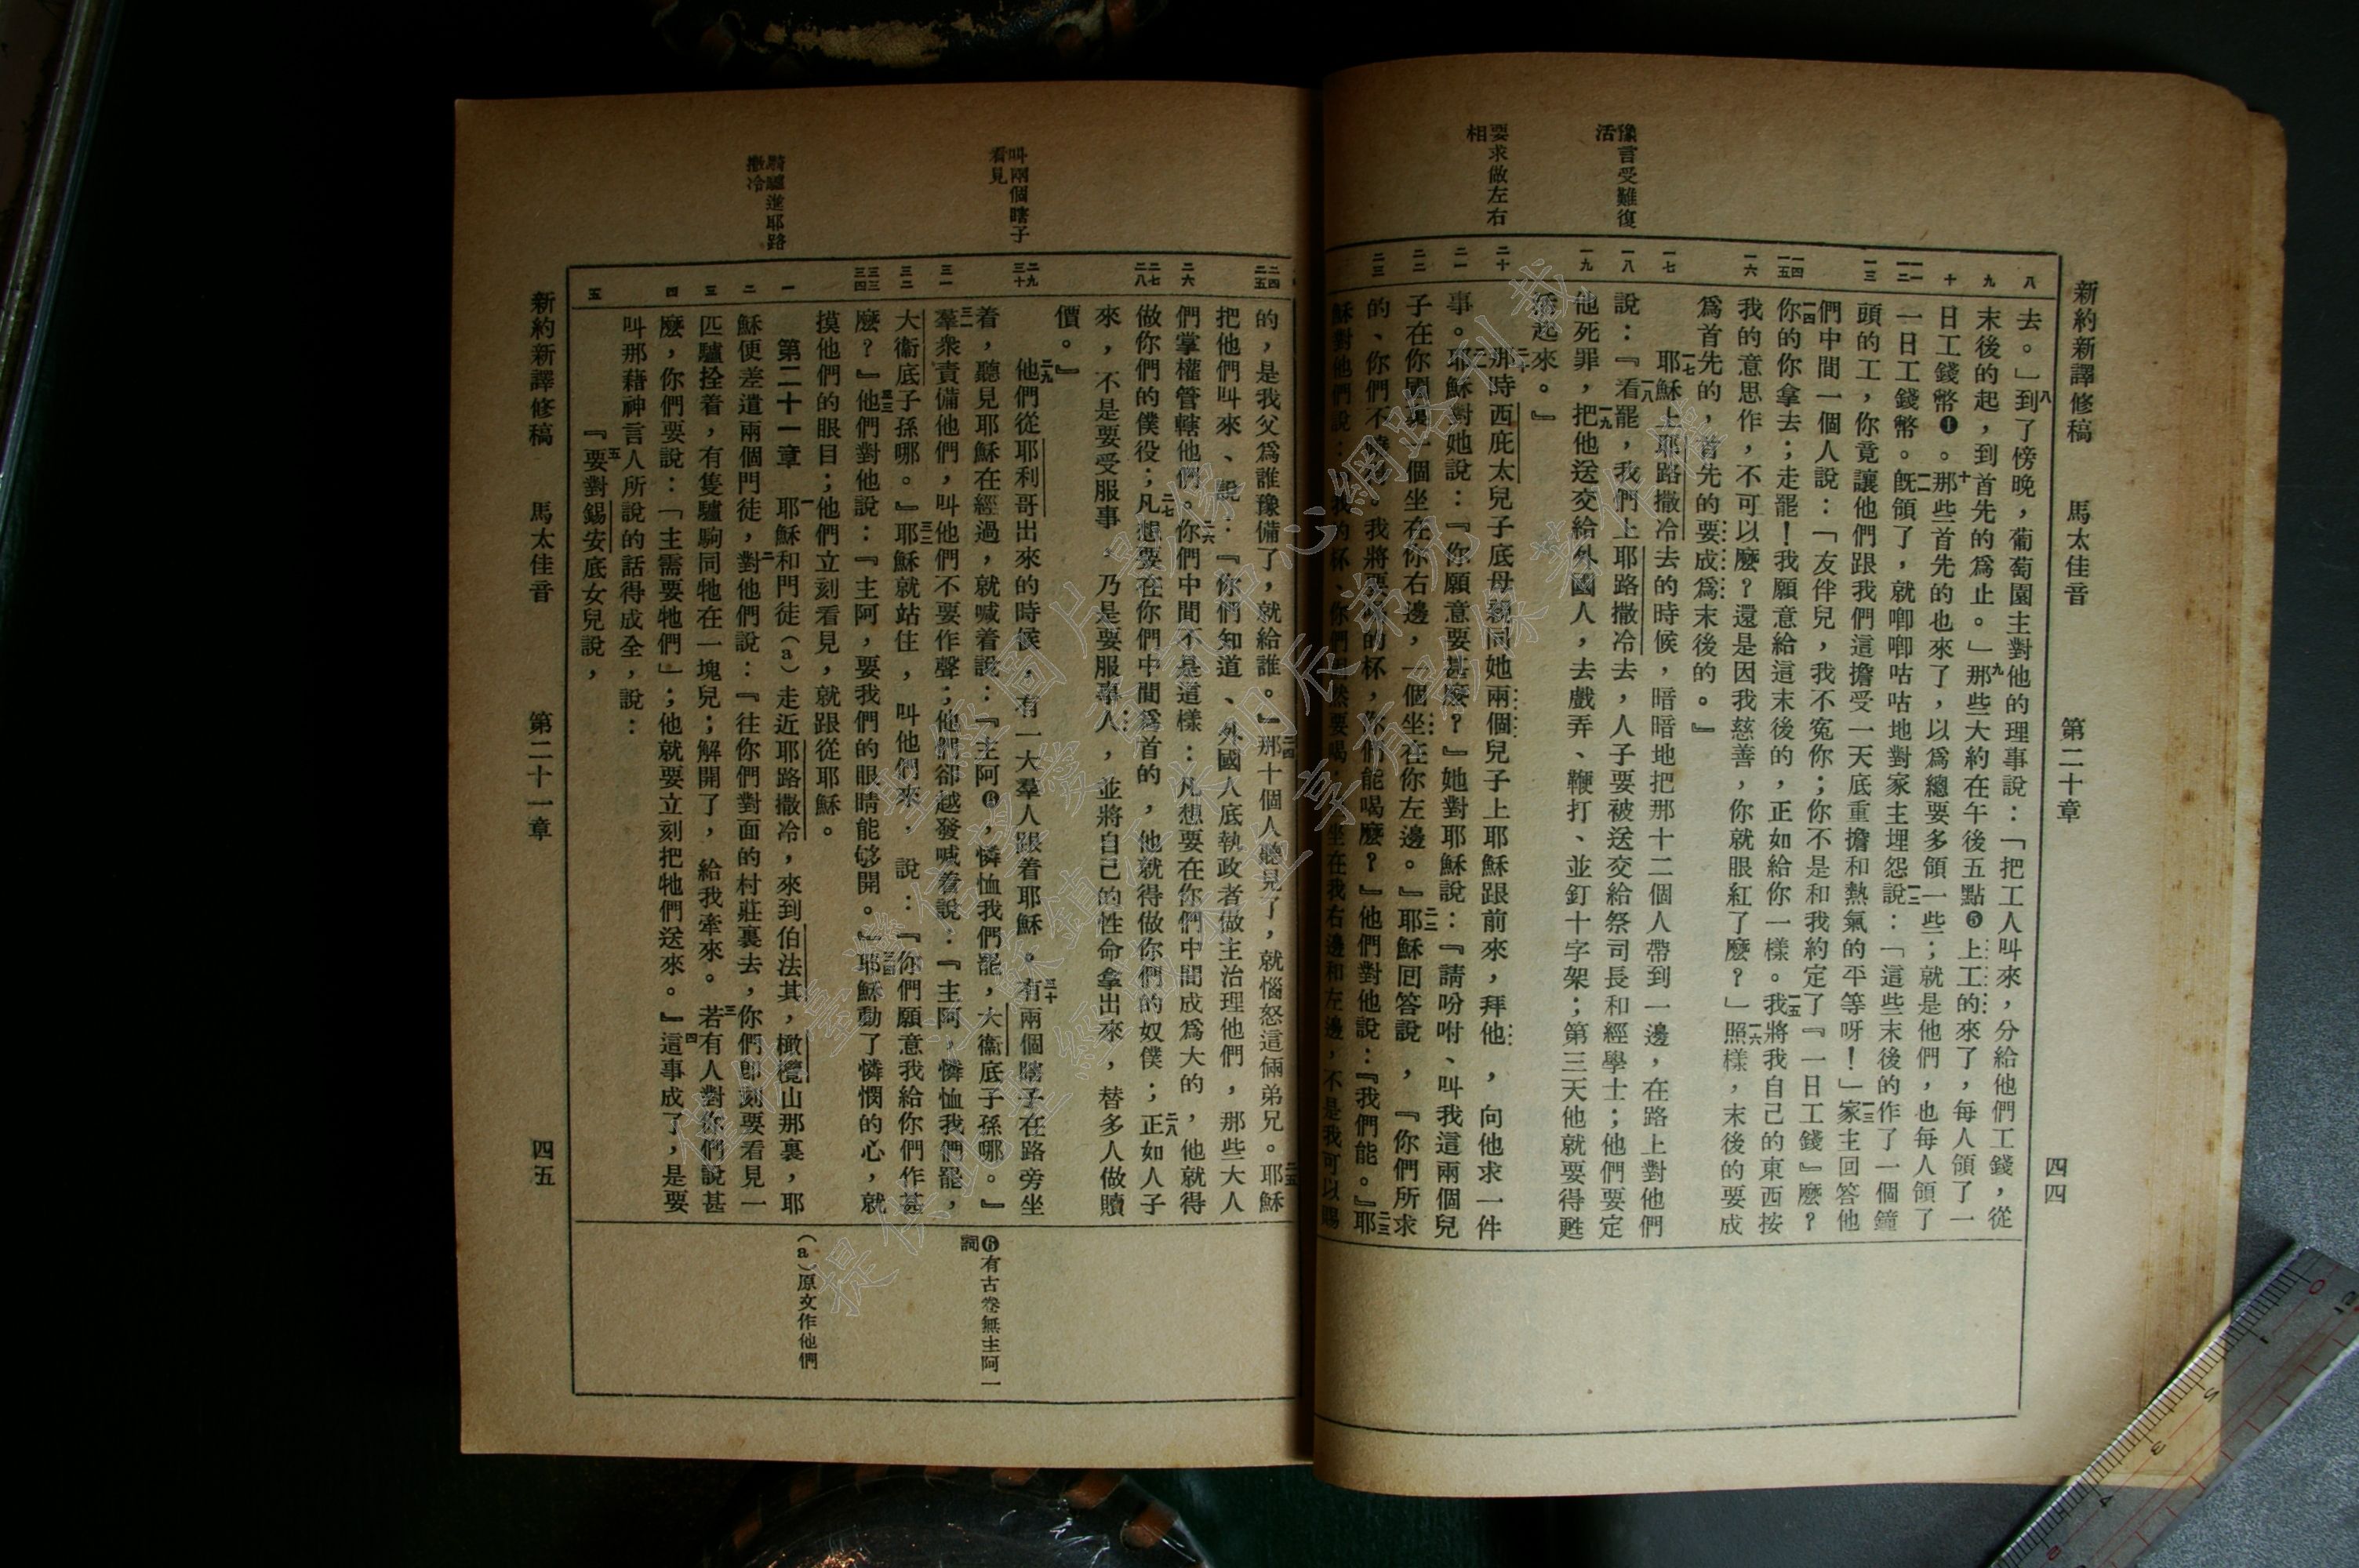 新約新譯修稿　馬太佳音　第二十章　四四
豫言受難復活
要求做左右相
八
九
十
一一
一二
一三
一四
一五
一六
一七
一八
一九
二十
二一
二二
二三
去。」八到了傍晚，葡萄園主對他的理事說：「把工人叫來，分給他們工錢，從
末後的起，到首先的為止。」九那些大約在午後五點❺上工的來了，每人領了一
日工錢幣❶。十那些首先的也來了，以為總要多領一些；就是他們，也每人領了
一日工錢幣。一一旣領了，就唧唧咕咕地對家主埋怨說：一二「這些末後的作了一個鐘
頭的工，你竟讓他們跟我們這擔受一天底重擔和熱氣的平等呀！」一三家主回答他
們中間一個人說：「友伴兒，我不寃你；你不是和我約定了『一日工錢』麼？
一四你的你拿去；走罷！我願意給這末後的，正如給你一樣。一五我將我自己的東西按
我的意思作，不可以麼？還是因我慈善，你就眼紅了麼？」一六照樣，末後的要成
為首先的，首先的要成為末後的。』
一七耶穌上耶路撒冷去的時候，暗暗地把那十二個人帶到一邊，在路上對他們
說：一八『看罷，我們上耶路撒冷去，人子要被送交給祭司長和經學士；他們要定
他死罪，一九把他送交給外國人，去戲弄、鞭打、並釘十字架；第三天他就要得甦
活起來。』
二十那時西庇太兒子底母親同她兩個兒子上耶穌跟前來，拜他，向他求一件
事。二一耶穌對她說：『你願意要甚麼？』她對耶穌說：『請吩咐、叫我這兩個兒
子在你國裏一個坐在你右邊，一個坐在你左邊。』二二耶穌回答說，『你們所求
的、你們不曉得。我將要喝的杯，你們能喝麼？』他們對他說：『我們能。』二三耶
穌對他們說：『我的杯、你們固然要喝；坐在我右邊和左邊，不是我可以賜
叫兩個瞎子看見
騎驢進耶路撒冷
二四
二五
二六
二七
二八
二九
三十
三一
三二
三三
三四
一
二
三
四
五
的，是我父為誰豫備了，就給誰。』二四那十個人聽見了，就惱怒這倆弟兄。二五耶穌
把他們叫來、說：『你們知道、外國人底執政者做主治理他們，那些大人
們掌權管轄他們。二六你們中間不是這樣：凡想要在你們中間成為大的，他就得
做你們的僕役；二七凡想要在你們中間為首的，他就得做你們的奴僕；二八正如人子
來，不是要受服事，乃是要服事人，並將自己的性命拿出來，替多人做贖
價。』
二九他們從耶利哥出來的時候，有一大羣人跟着耶穌。三十有兩個瞎子在路旁坐
着，聽見耶穌在經過，就喊着說：『主阿❻，憐恤我們罷，大衞底子孫哪。』
三一羣衆責備他們，叫他們不要作聲；他們卻越發喊着說：『主阿，憐恤我們罷，
大衞底子孫哪。』三二耶穌就站住，叫他們來，說：『你們願意我給你們作甚
麼？』三三他們對他說：『主阿，要我們的眼睛能够開。』三四耶穌動了憐憫的心，就
摸他們的眼目；他們立刻看見，就跟從耶穌。
第二十一章　一耶穌和門徒（a）走近耶路撒冷，來到伯法其，橄欖山那裏，耶
穌便差遣兩個門徒，二對他們說：『往你們對面的村莊裏去，你們卽刻要看見一
匹驢拴着，有隻驢駒同牠在一塊兒；解開了，給我牽來。三若有人對你們說甚
麼，你們要說：「主需要牠們」；他就要立刻把牠們送來。』四這事成了，是要
叫那藉神言人所說的話得成全，說：
五『要對錫安底女兒說，
❻有古卷無主阿一詞
（a）原文作他們
新約新譯修稿　馬太佳音　第二十一章　四五